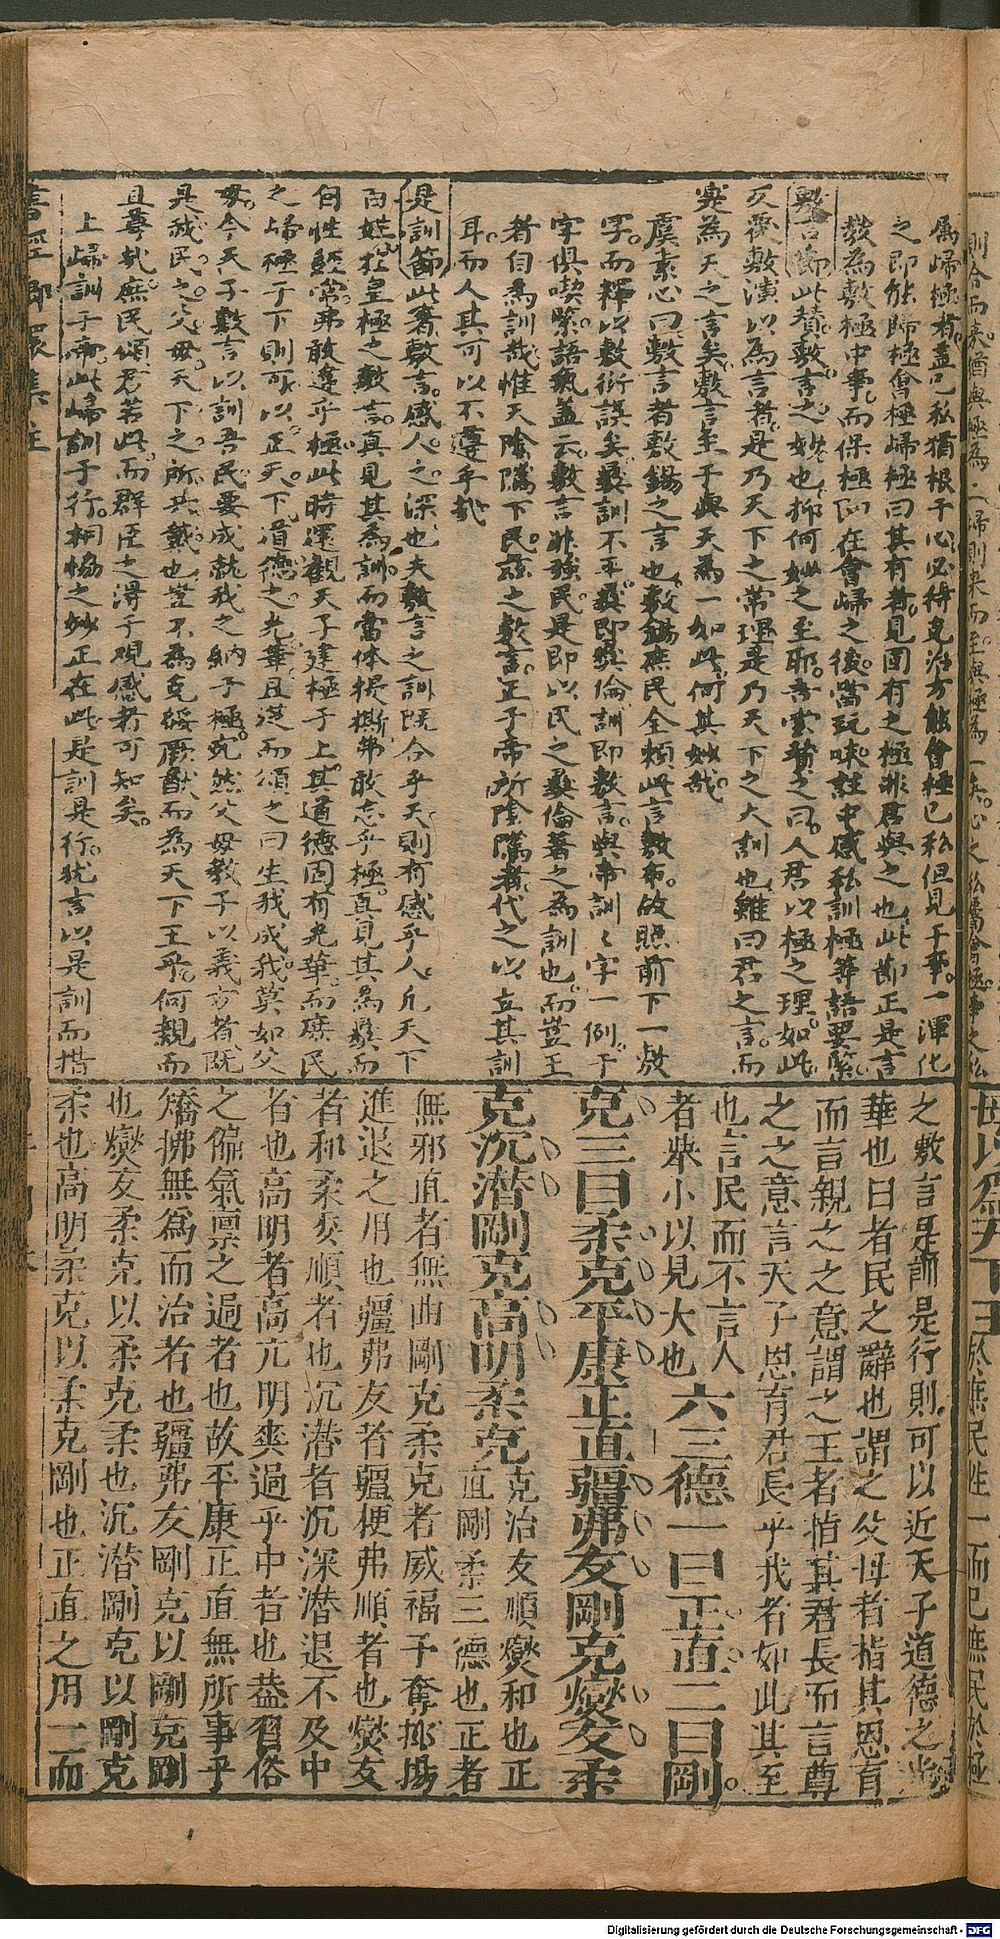 屬歸極者蓋己私猶根于心必待克治方能會極已私但見于事一渾化
之即能歸極會極歸極曰其有者見固有之極非君與之也此節正是言
教為敷極中事而保極即在會歸之後當玩味註中感私訓極等語要緊
敷言節此贊敷言之妙也抑何妙之至耶言贊之曰人君以極之理如此
反覆敷演以為言者是乃天下之常理是乃天下之大訓也雖曰君之言而
寔為天之言矣敷言至于與天為一如此何其妙哉
虞素心曰敷言者敷錫之言也敷錫庶民全頼此言敷布故照前下一敷
字而釋以敷衍誤矣彞訓不平彞即彞倫訓即敷言與帝訓訓字一例于
字俱喫緊語氣蓋云敷言非強民是即以民之彞倫著之為訓也而豈王
者自為訓哉惟天陰隲下民茲之敷言正于帝所陰隲者代之以立其訓
耳而人其可以不遵乎哉
是訓節此著敷言感人之深也夫敷言之訓既合乎天則有感乎人凡天下
百姓於皇極之敷言真見其為訓而當体提撕弗敢忘乎極真見其為彞而
何性經常弗敢違乎極此時還觀天子建極于上其道德固有光華而庶民
之歸極于下則可以正天下道德之光華且從而頌之曰生我成我莫如父
母今天子敷言以訓吾民要成就我之納于極宛然父母教子以義方者既
是我民之父母天下之所共戴也豈不為克綏厥猷而為天下王乎何親而
且尊哉庶民頌君若此而群臣之得于觀感者可知矣
上歸訓于帝此歸訓于行相恊之妙正在此是訓是行犹言以是訓而措
之敷言是訓是行則可以近天子道德之光
華也曰者民之辭也謂之父母者指其恩育
而言親之之意謂之王者指其君長而言尊
之之意言天子恩育君長乎我者如此其至
也言民而不言人
者舉小以見大也六三德一曰正直二曰剛
克三曰柔克平康正直疆弗友剛克燮友柔
克沉潜剛克高明柔克克治友順燮和也正
直剛柔三德也正者
無邪直者無曲剛克柔克者威福予奪抑揚
進退之用也疆弗友者疆梗弗順者也燮友
者和柔委順者也沉潜者沉深潜退不及中
者也高明者高亢明爽過乎中者也蓋習俗
之偏氣禀之過者也故平康正直無所事乎
矯拂無為而治者也疆弗友剛克以剛克剛
也燮友柔克以柔克柔也沉潜剛克以剛克
柔也高明柔克以柔克剛也正直之用一而
Digitalisierung gefördert durch die Deutsche Forschungsgemeinschaft - DFG